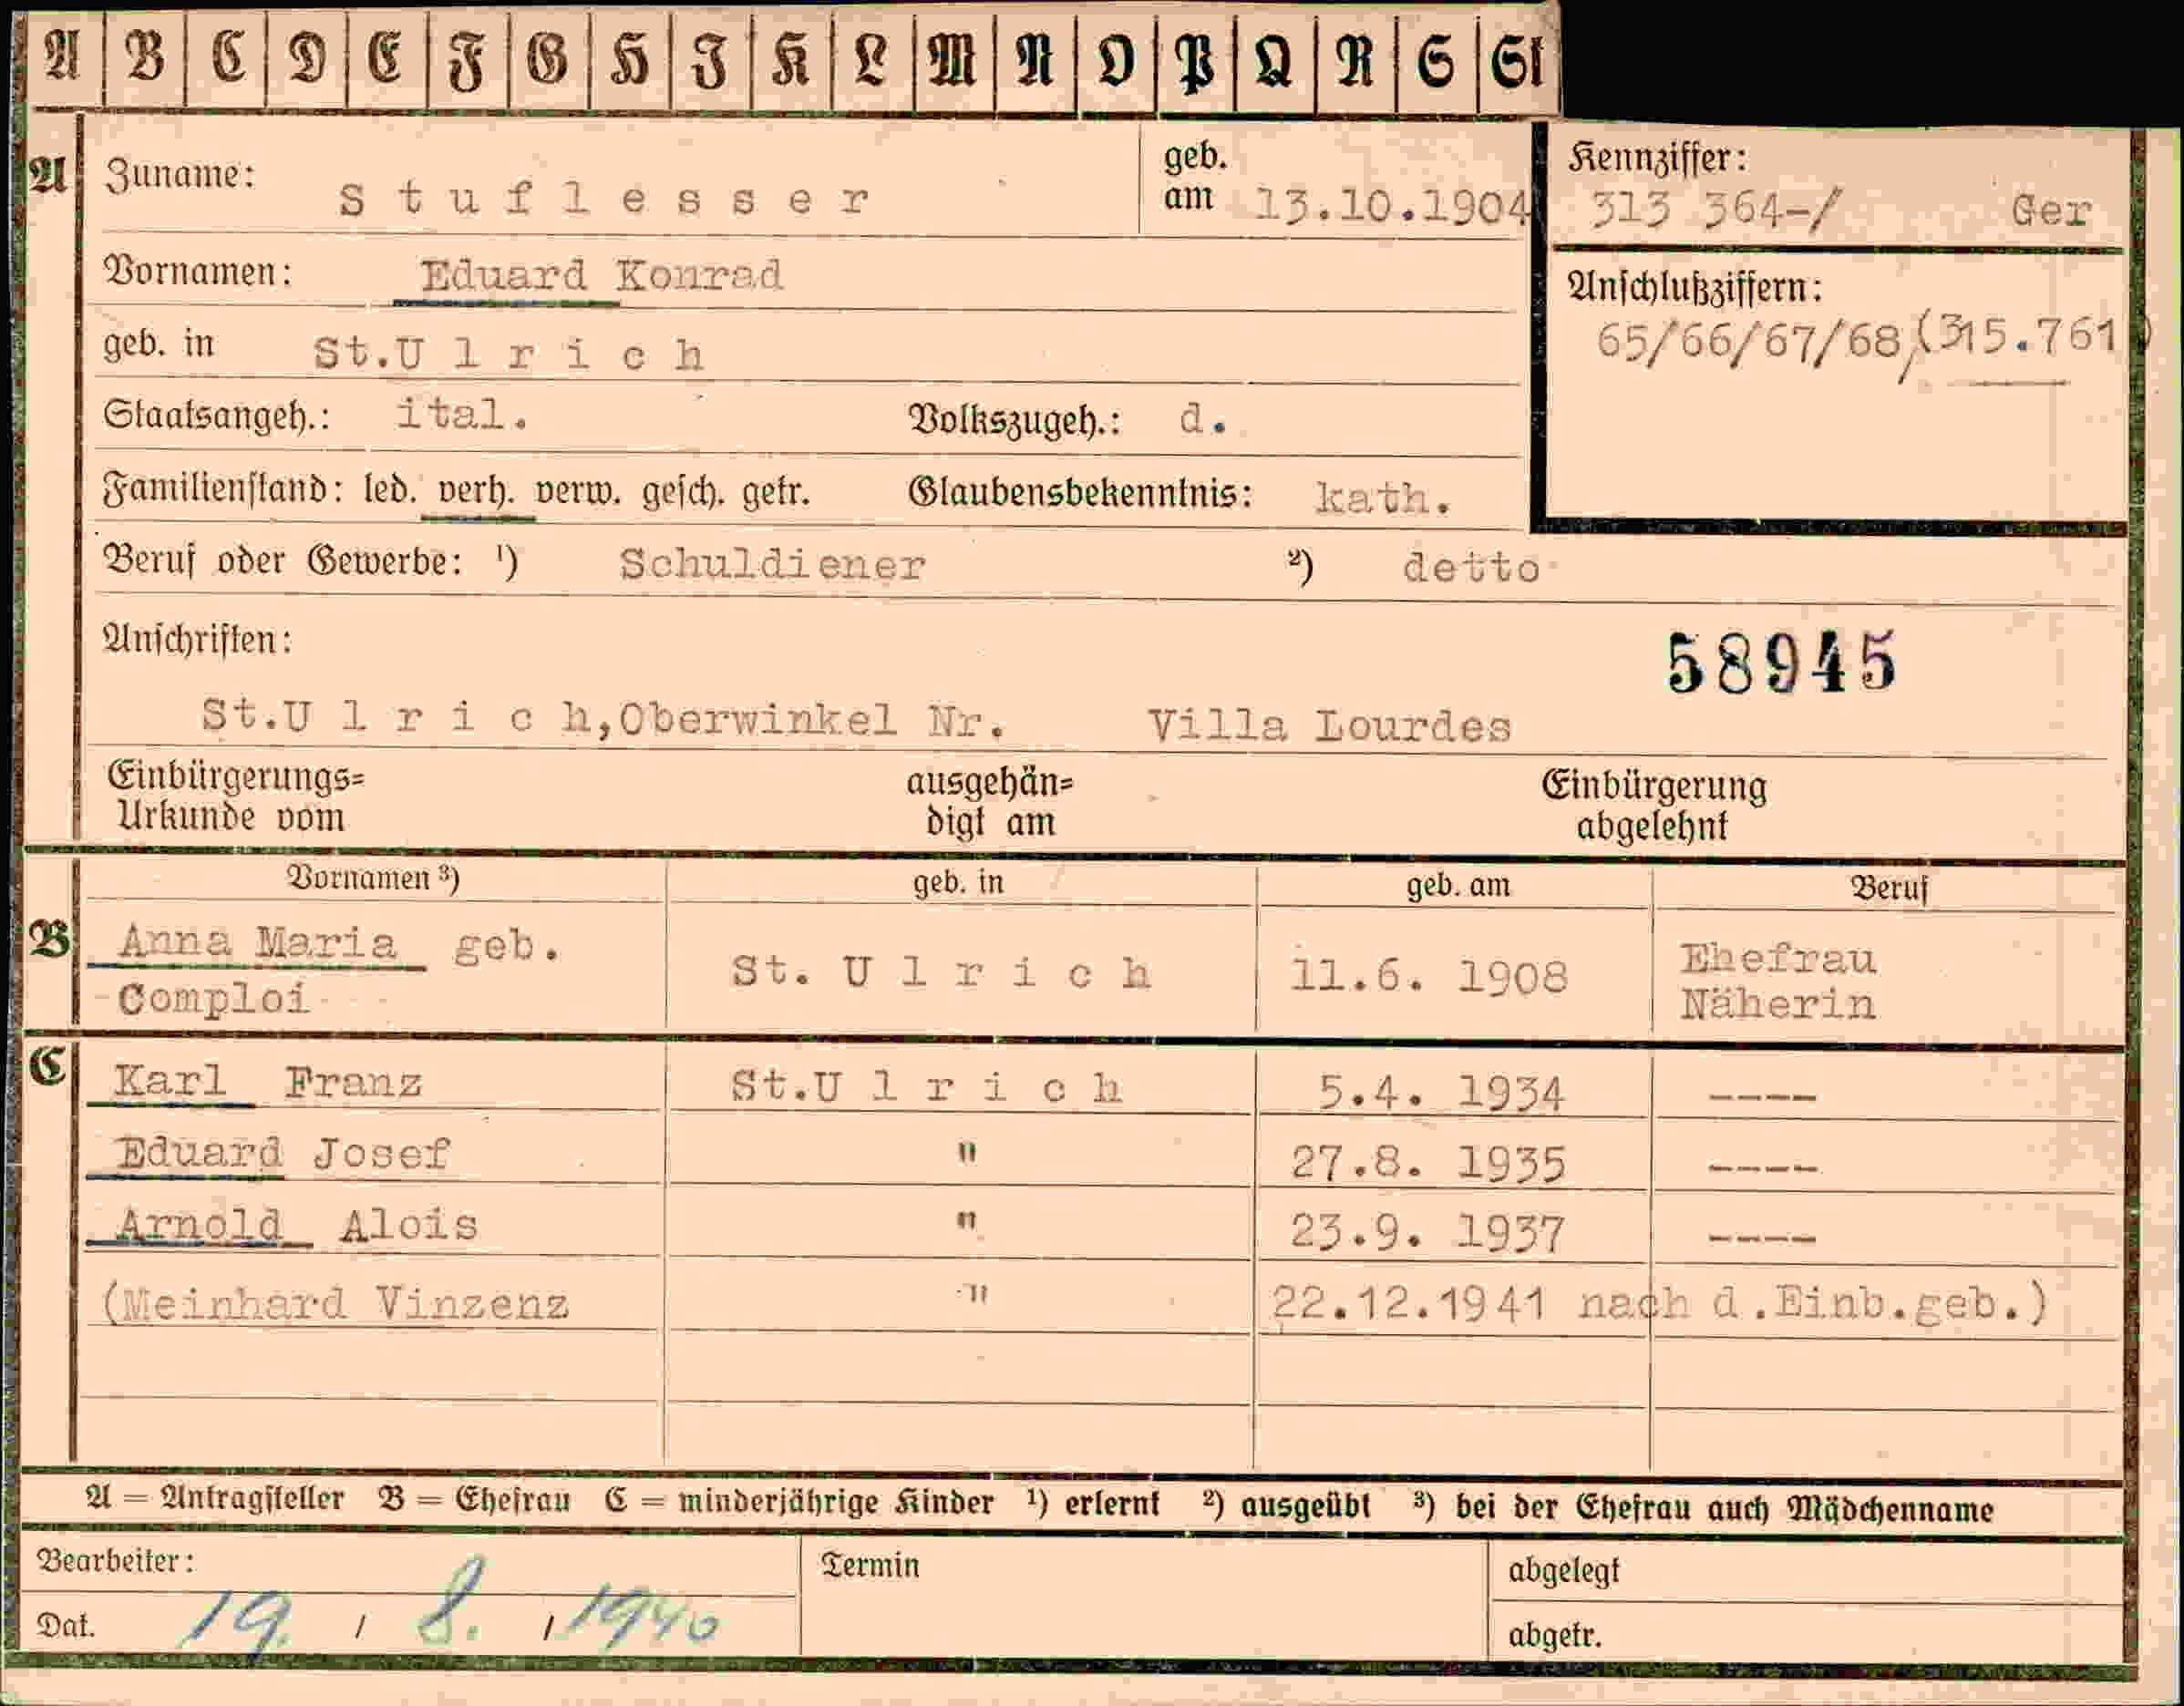 A B C D E F G H I K L M N O P Q R S St
A Zuname: Stuflesser geb. am 13.10.1904 Kennziffer: 313 364-/ Ger
Vornamen: Eduard Konrad
Anschlußziffern:
geb. in St.Ulrich 65/66/67/68,(315.761)
Staatsangeh.: ital. Volkszugeh.: d.
Familienstand: led. verh. verw. gesch. getr. Glaubensbekenntnis: kath.
Beruf oder Gewerbe: ¹) Schuldiener ²) detto
Anschriften: 58945
St.Ulrich,Oberwinkel Nr. Villa Lourdes
Einbürgerungs= ausgehän= Einbürgerung
Urkunde vom digt am abgelehnt
Vornamen ³) geb. in geb. am Beruf
B Anna Maria geb. St. Ulrich 11.6. 1908 Ehefrau
Comploi Näherin
C Karl Franz St.Ulrich 5.4. 1934 ----
Eduard Josef " 27.8. 1935 ----
Arnold Alois " 23.9. 1937 ----
(Meinhard Vinzenz " 22.12.1941 nach d.Einb.geb.)
A = Antragsteller B = Ehefrau C = minderjährige Kinder ¹) erlernt ²) ausgeübt ³) bei der Ehefrau auch Mädchenname
Bearbeiter: Termin abgelegt
Dat. 19. / 8. / 1940 abgetr.